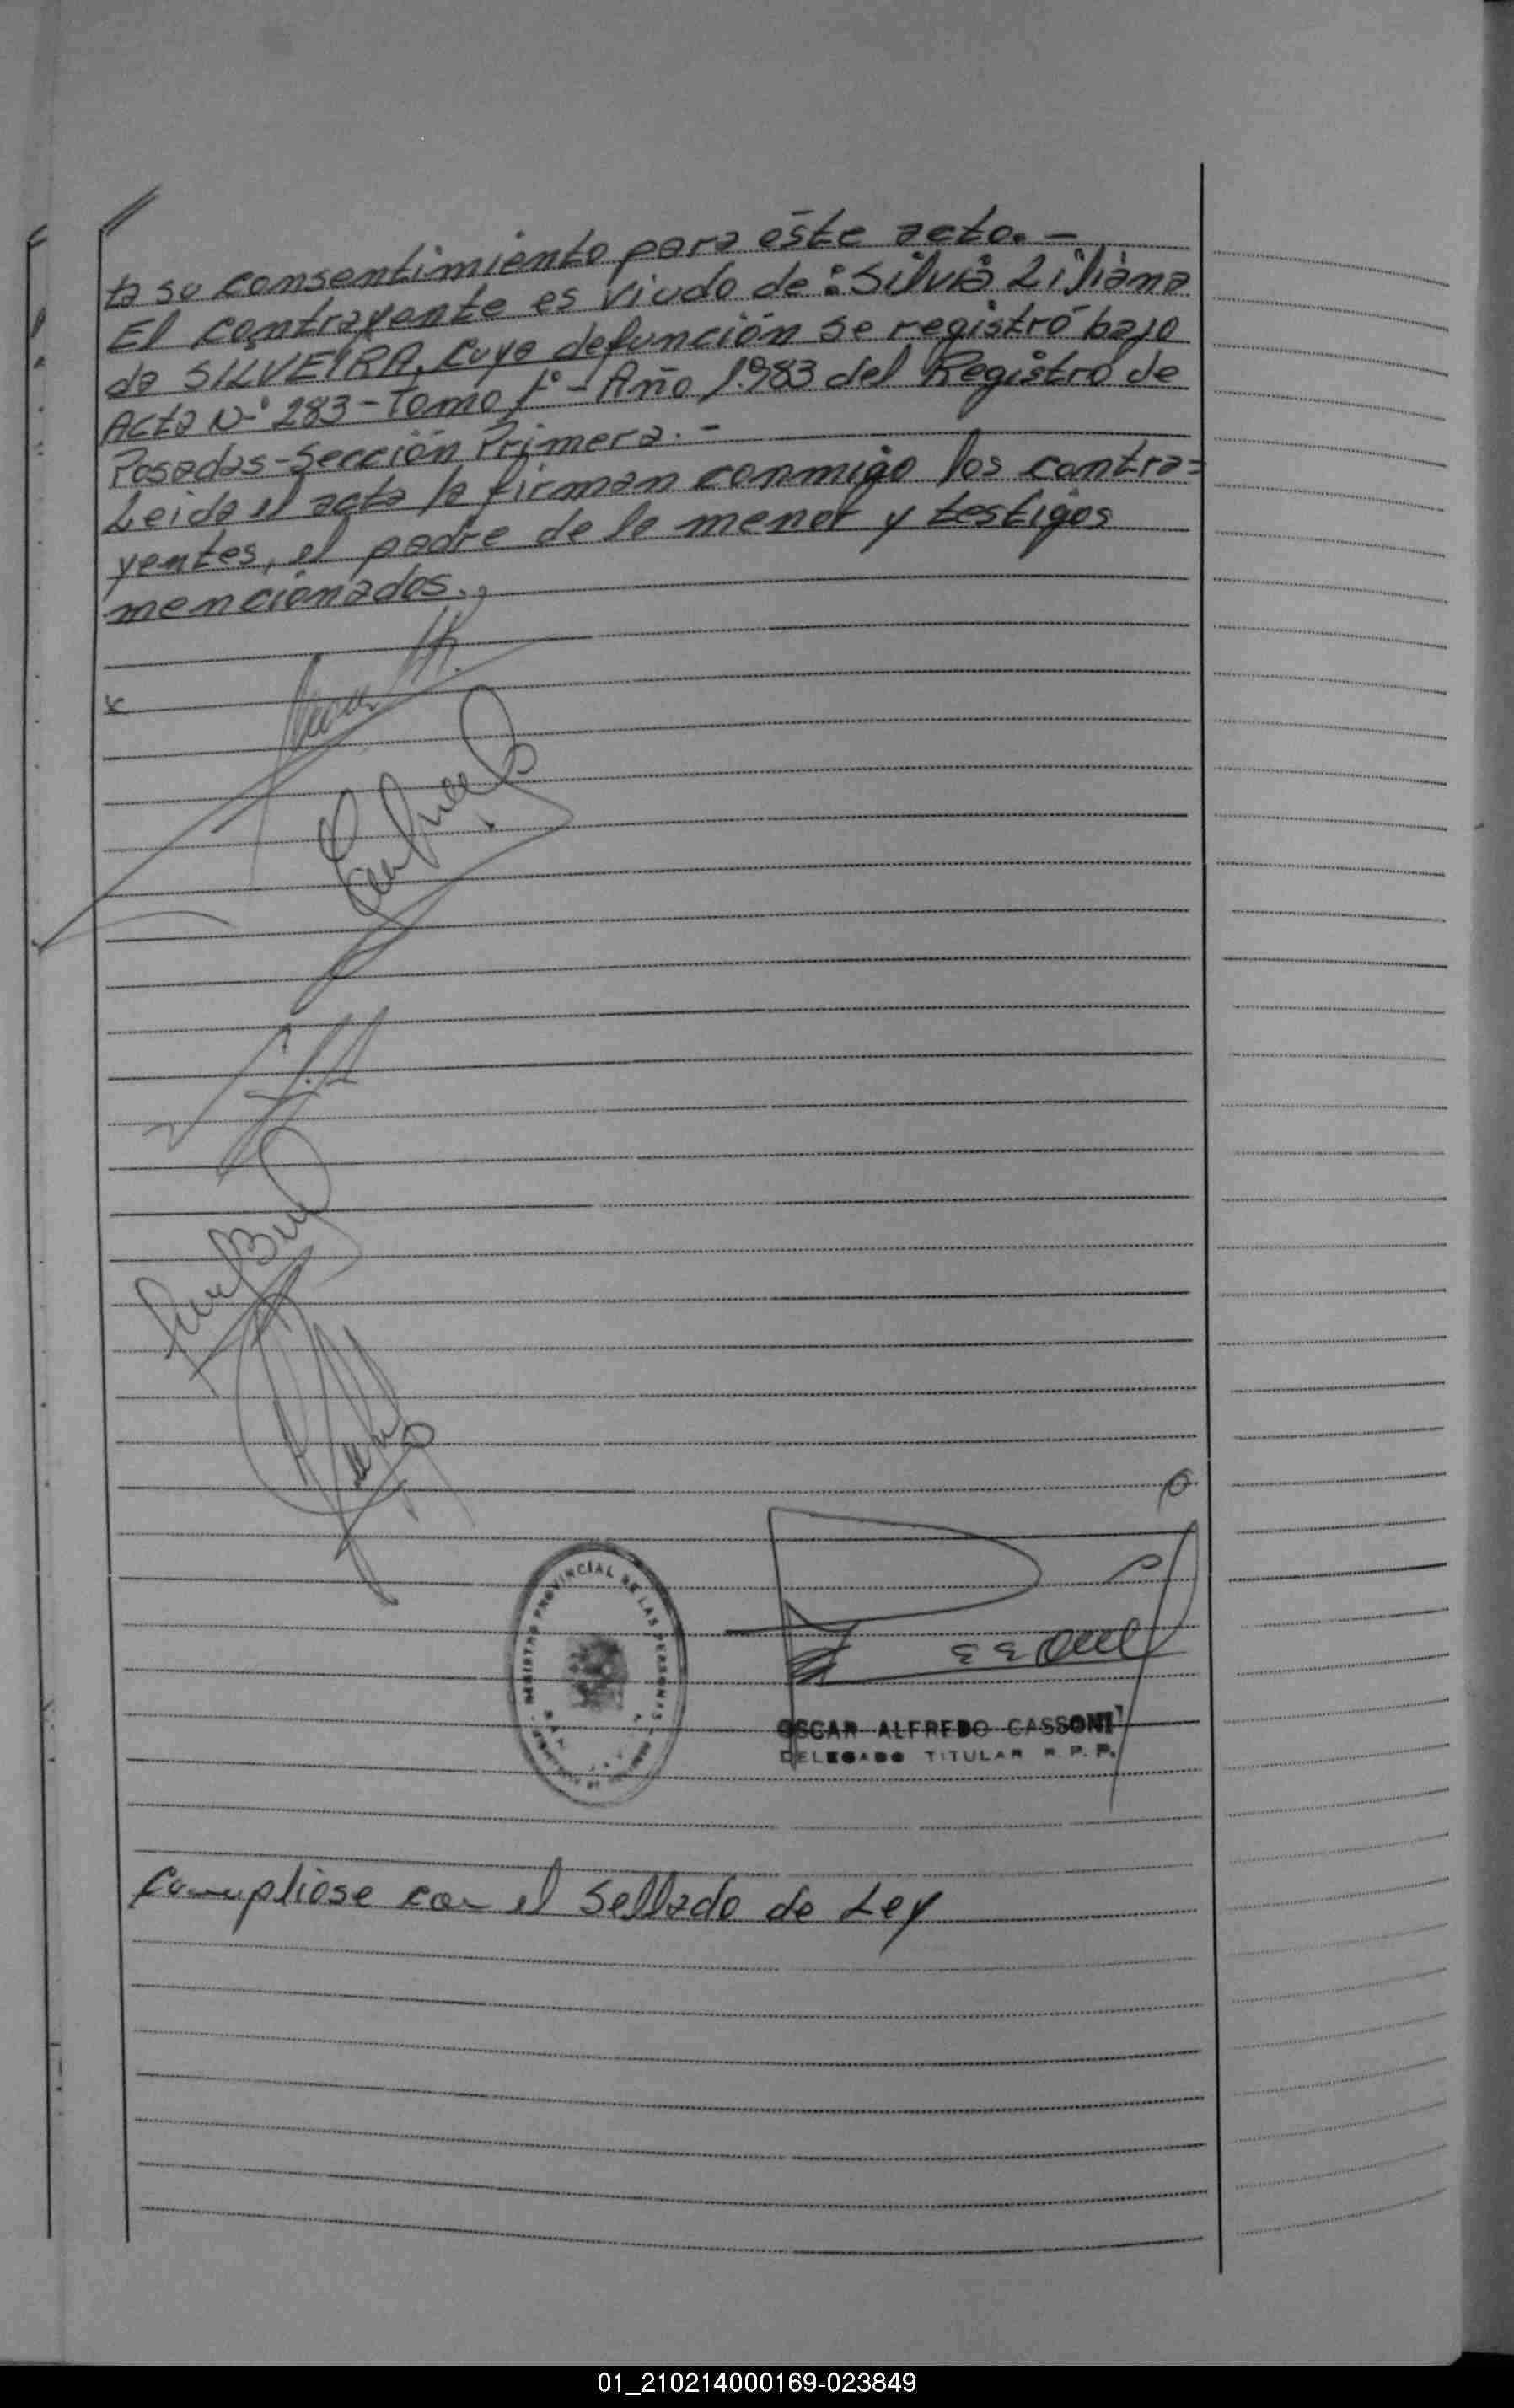 ta su consentimiento para éste acto.-
El contrayente es viudo de: Silvia Liliana
da SILVEIRA, cuya defunción se registró bajo
Acta Nº 283-Tomo 1º-Año 1.983 del Registro de
Posadas-Sección Primera.-
Leida el acta la firman conmigo los contra=
yentes, el padre de la menor y testigos
mencionados.,
REGISTRO PROVINCIAL DE LAS PERSONAS
OSCAR ALFREDO CASSONI
DELEGADO TITULAR R. P. P.
Cumpliose con el Sellado de Ley
01_210214000169-023849